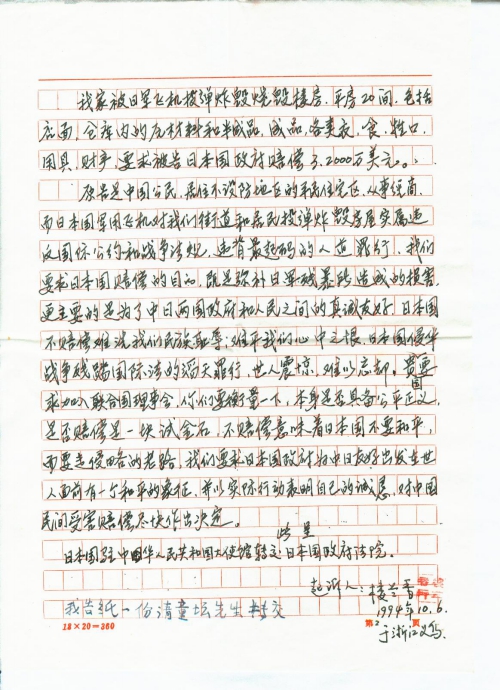 我家被日军飞机投弹炸毁烧毁楼房、平房20间,包括
店面、仓库内的原材料和半成品、成品,各类衣、食、牲口、
用具、财产,要求被告日本国政府赔偿3.2000万美元。
原告是中国公民,居住不设防地区的平民住宅区,从事经商,
而日本国军用飞机对我们街道和居民投弹炸毁房屋实属违
反国际公约和战争法规,违背最起码的人道罪行,我们
要求日本国赔偿的目的,既是弥补日军残暴所造成的损害,
更主要的是为了中日两国政府和人民之间的真诚友好,日本国
不赔偿难洗我们民族耻辱,难平我们心中之恨,日本国侵华
战争践踏国际法的滔天罪行,世人震惊,难以忘却。贵国要
求加入联合国理事会,你们要衡量一下,本身是否具备公平正义,
是否赔偿是一块试金石,不赔偿意味着日本国不要和平,
而要走侵略的老路,我们要求日本国政府为中日友好出发在世
人面前有一个和平的象征,并以实际行动表明自己的诚意,对中国
民间受害赔偿尽快作出决定。
此呈
日本国驻中华人民共和国大使馆转交:日本国政府法院。
起诉人:楼
1994年10.6.
于浙江义乌
我告纸一份请童坛先生转交
18×20=360
第2页